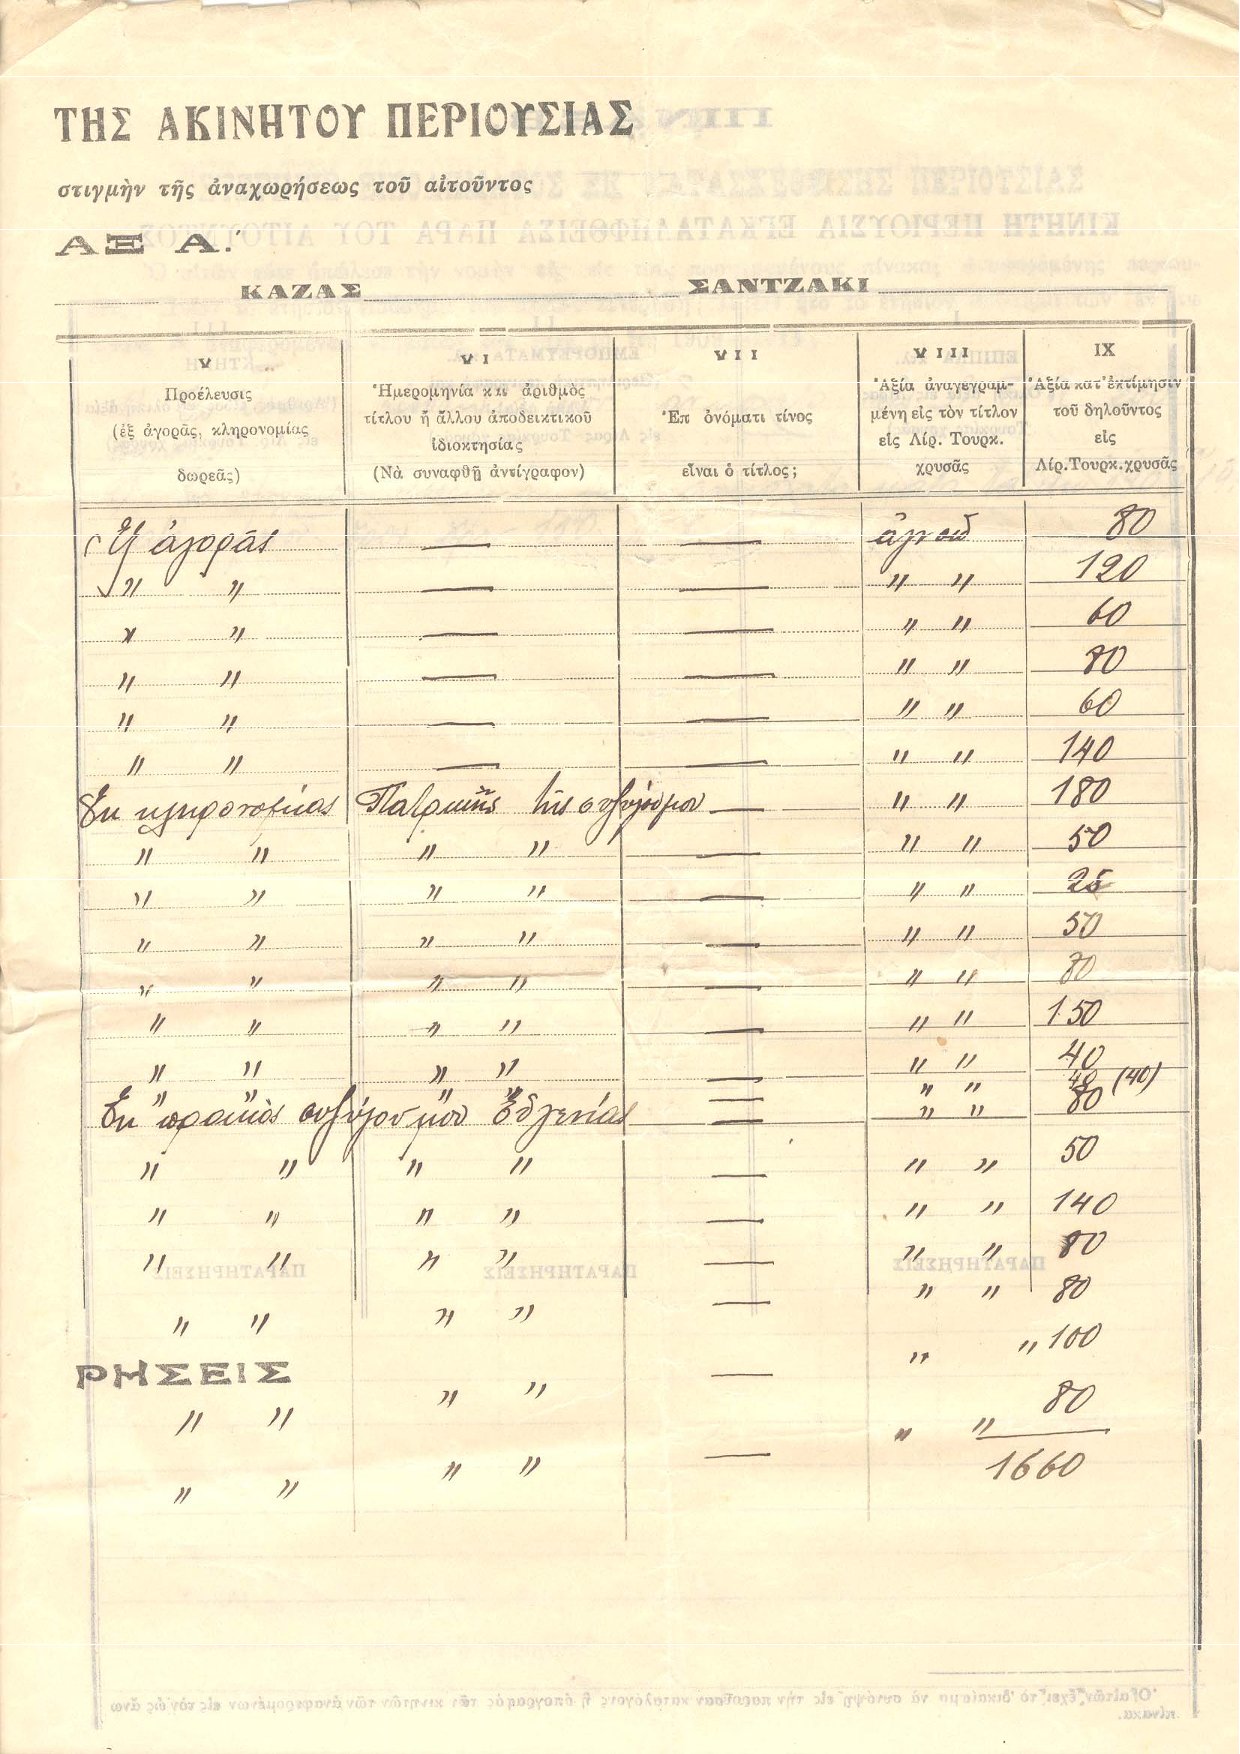 ΤΗΣ ΑΚΙΝΗΤΟΥ ΠΕΡΙΟΥΣΙΑΣ
στιγμὴν τῆς ἀναχωρήσεως τοῦ αἰτοῦντος
ΑΞ Α.΄
ΚΑΖΑΣ ΣΑΝΤΖΑΚΙ
V
Προέλευσις
(ἐξ ἀγορᾶς, κληρονομίας
δωρεᾶς)
VI
Ἡμερομηνία καὶ ἀριθμὸς
τίτλου ἤ ἄλλου ἀποδεικτικοῦ
ἰδιοκτησίας
(Νὰ συναφθῇ ἀντίγραφον)
VII
Ἐπ ὀνόματι τίνος
εἶναι ὁ τίτλος;
VIII
Ἀξία ἀναγεγραμ-
μένη εἰς τὸν τίτλον
εἰς Λίρ. Τουρκ.
χρυσᾶς
IX
Ἀξία κατ' ἐκτίμησιν
τοῦ δηλοῦντος
εἰς
Λίρ.Τουρκ.χρυσᾶς
Ἐξ ἀγορᾶς — — ἀγνοῶ 80
〃 〃 — — 〃 〃 120
〃 〃 — — 〃 〃 60
〃 〃 — — 〃 〃 80
〃 〃 — — 〃 〃 60
〃 〃 — — 〃 〃 140
Ἐκ κληρονομίας Πατρικῆς τῆς συζύγου μου — 〃 〃 180
〃 〃 〃 〃 — 〃 〃 50
〃 〃 〃 〃 — 〃 〃 25
〃 〃 〃 〃 — 〃 〃 50
〃 〃 〃 〃 — 〃 〃 80
〃 〃 〃 〃 — 〃 〃 150
〃 〃 〃 〃 — 〃 〃 40
〃 〃 〃 〃 — 〃 〃 40 (40)
Ἐκ προικὸς συζύγου μου Εὐγενίας — 〃 〃 80
〃 〃 〃 〃 — 〃 〃 50
〃 〃 〃 〃 — 〃 〃 140
〃 〃 〃 〃 — 〃 〃 80
〃 〃 〃 〃 — 〃 〃 80
ΡΗΣΕΙΣ
〃 〃 〃 〃 — 〃 〃 100
〃 〃 〃 〃 — 〃 〃 80
1660